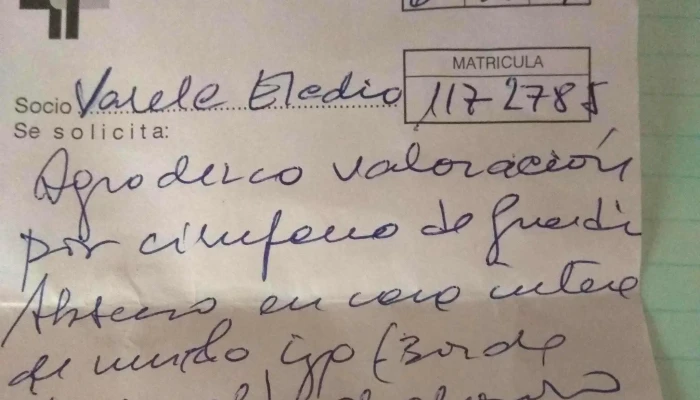 MATRICULA
Socio Varela Eladio 1172785
Se solicita:
Agradezco valoración
por cirujano de Guardia
Absceso en cara interna
de muslo izq (Borde